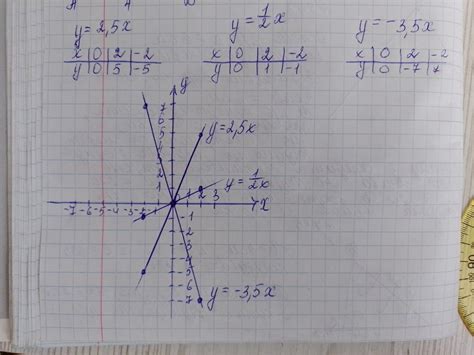 y = 2,5x
y = 1/2 x
y = -3,5x
x 0 2 -2
y 0 5 -5
x 0 2 -2
y 0 1 -1
x 0 2 -2
y 0 -7 7
y
7
6
5
y = 2,5x
y = 1/2 x
2
1
-7 -6 -5 -4 -3 -2
1 2 3
x
-1
-2
-4
-5
-6
-7
y = -3,5x
90